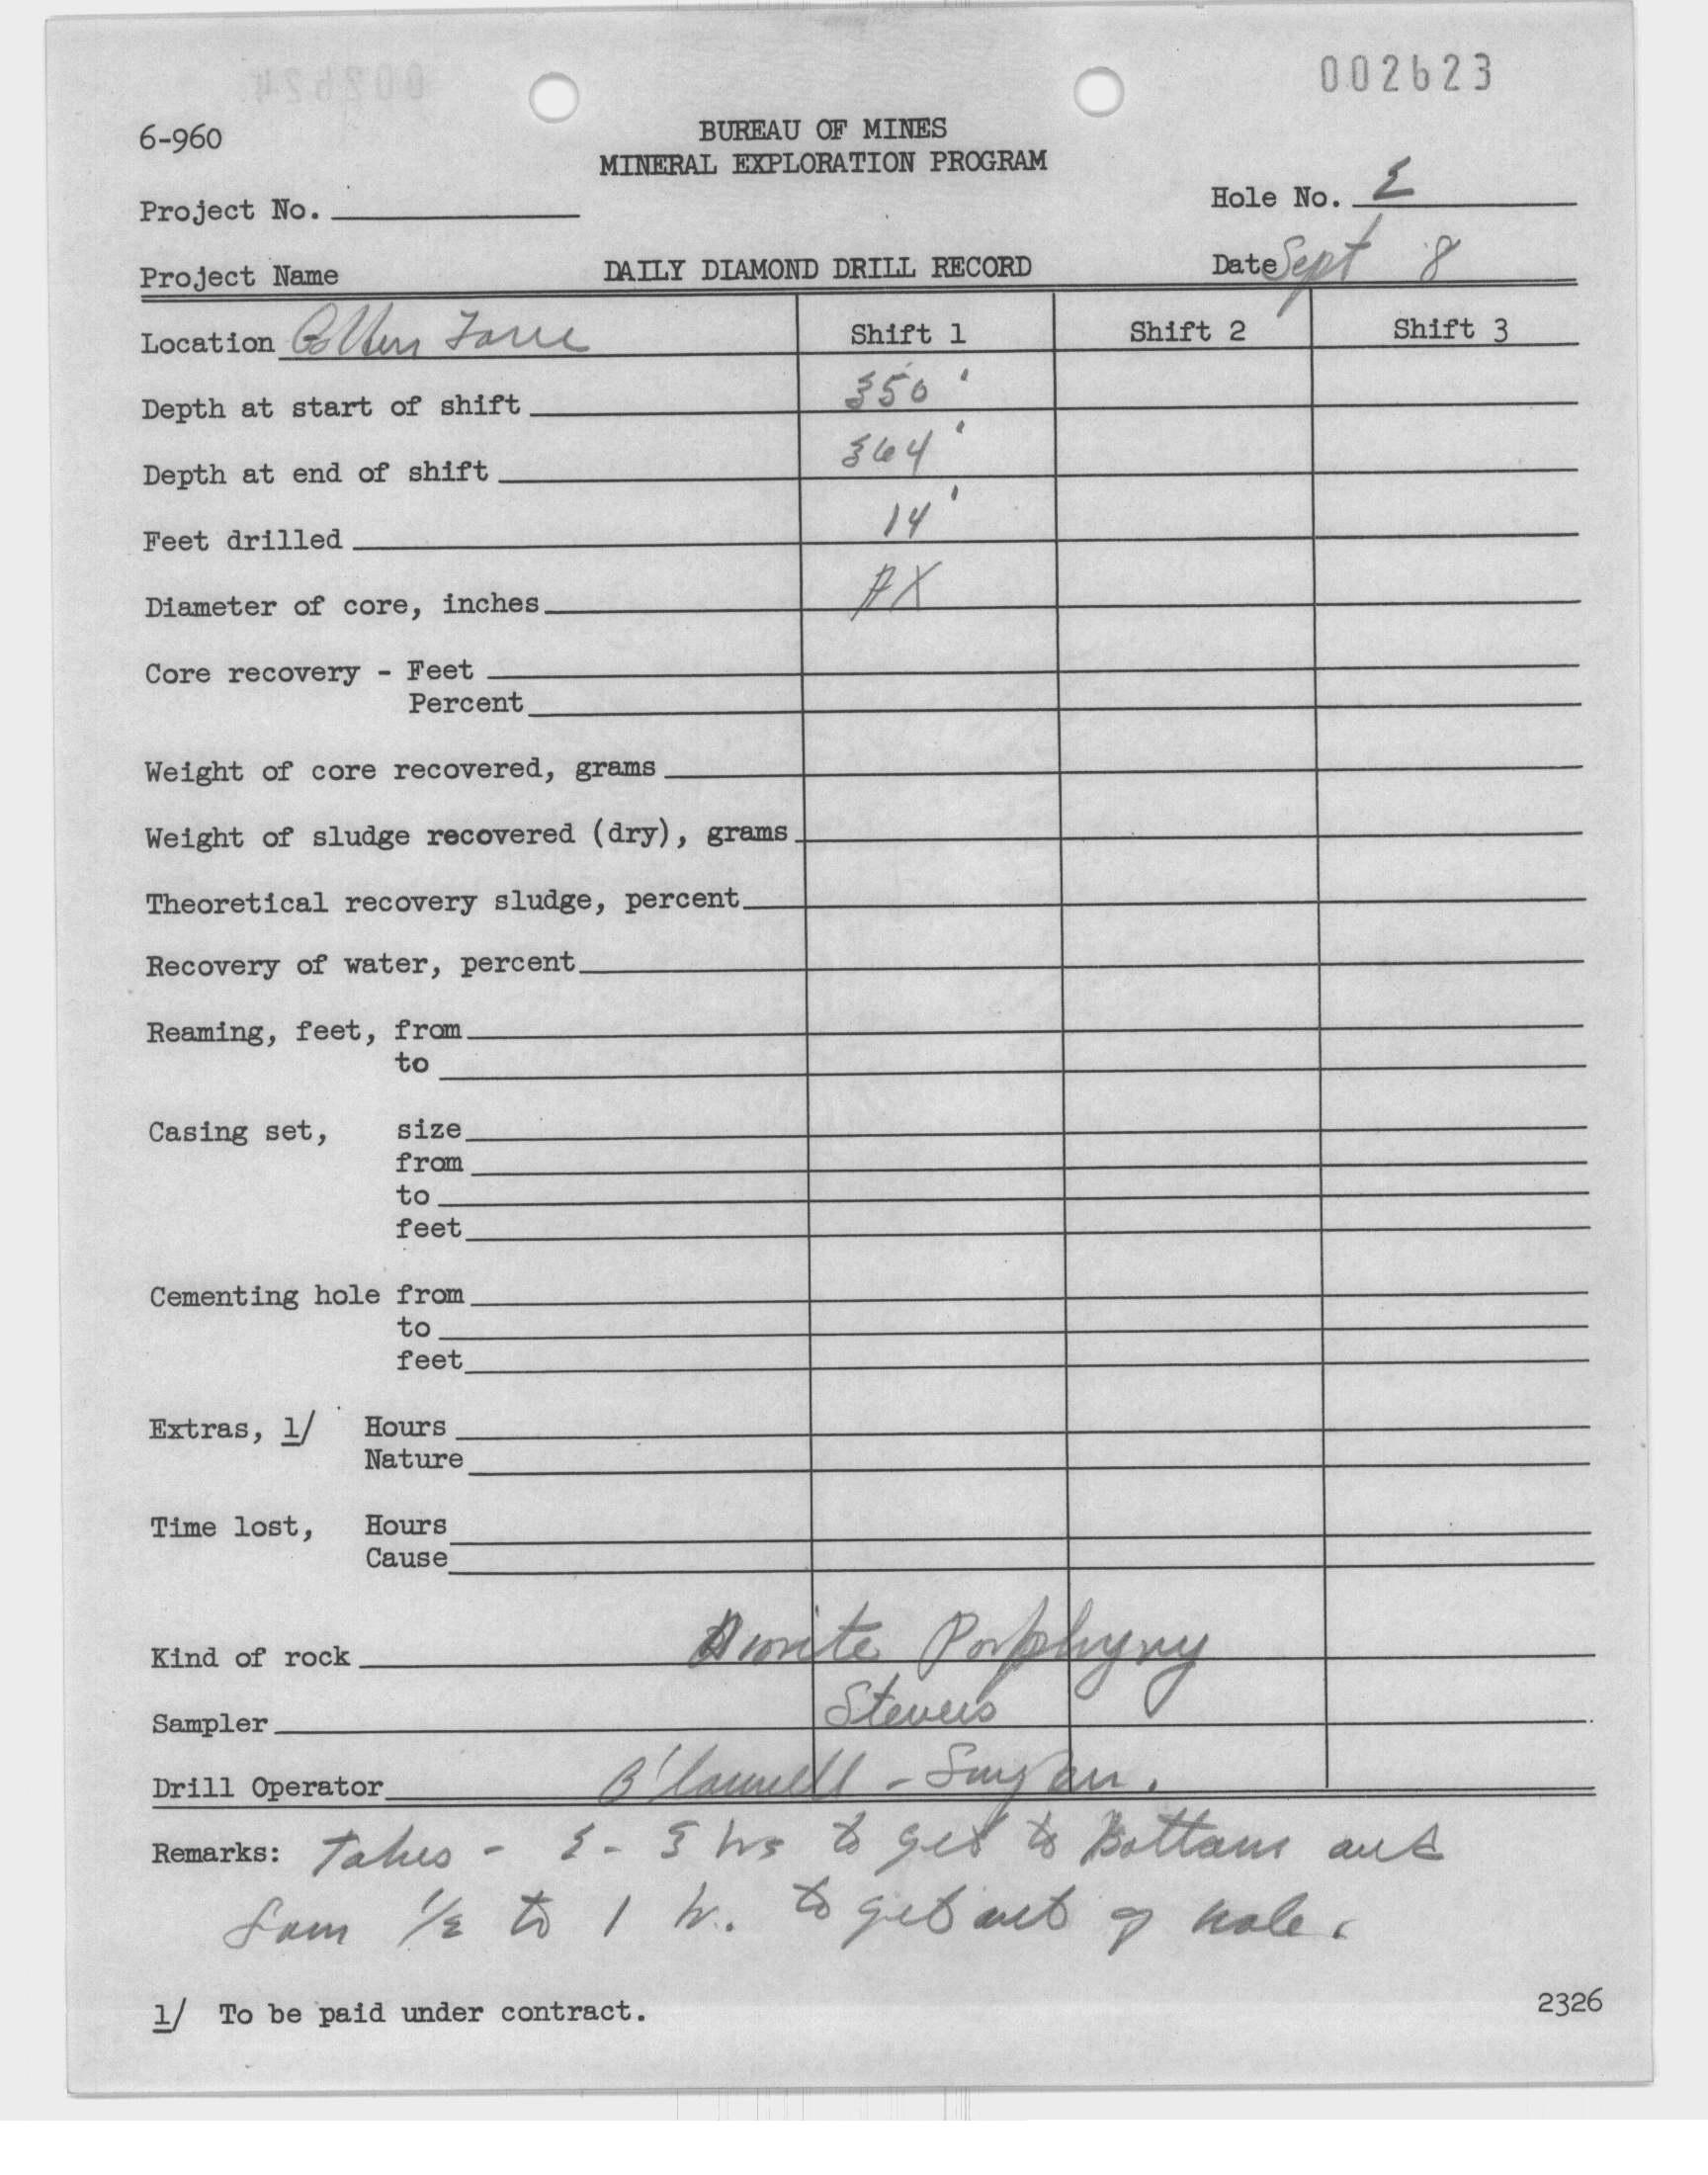 002623
6-960
BUREAU OF MINES
MINERAL EXPLORATION PROGRAM
Project No.
Hole No. 2
Project Name
DAILY DIAMOND DRILL RECORD
Date Sept 8
Location
Shift 1 Shift 2 Shift 3
Depth at start of shift 350'
Depth at end of shift 364'
Feet drilled 14'
Diameter of core, inches AX
Core recovery - Feet
Percent
Weight of core recovered, grams
Weight of sludge recovered (dry), grams
Theoretical recovery sludge, percent
Recovery of water, percent
Reaming, feet, from
to
Casing set, size
from
to
feet
Cementing hole from
to
feet
Extras, 1/ Hours
Nature
Time lost, Hours
Cause
Kind of rock Diorite Porphyry
Sampler Stevens
Drill Operator
Remarks: Takes - 2 - 3 hrs to get to Bottom and
1/2 to 1 hr. to get out of hole.
1/ To be paid under contract.
2326